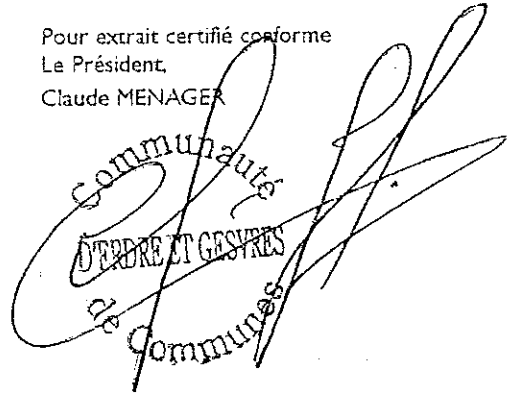 Pour extrait certifié conforme
Le Président,
Claude MENAGER
Communauté
D'ERDRE ET GESVRES
de Communes